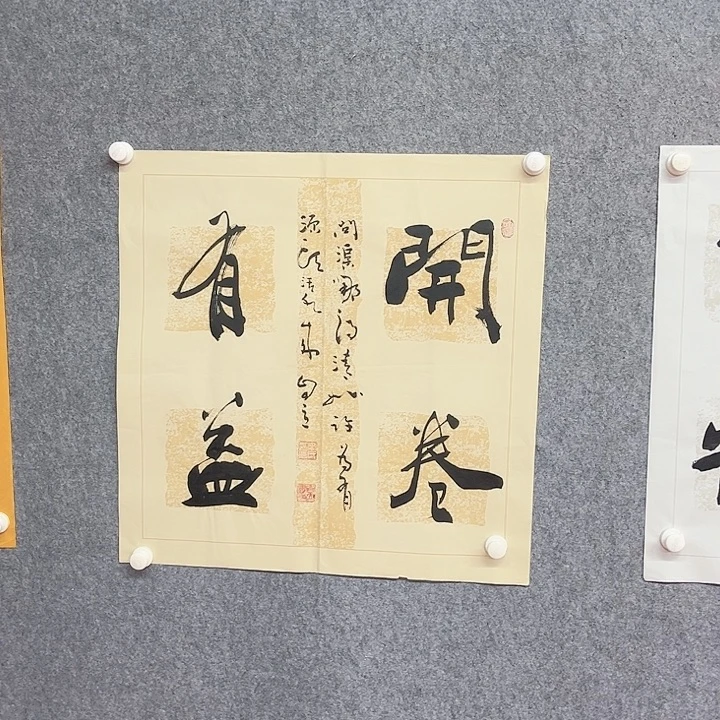 開卷
有益
問渠那得清如許為有
源頭活水來